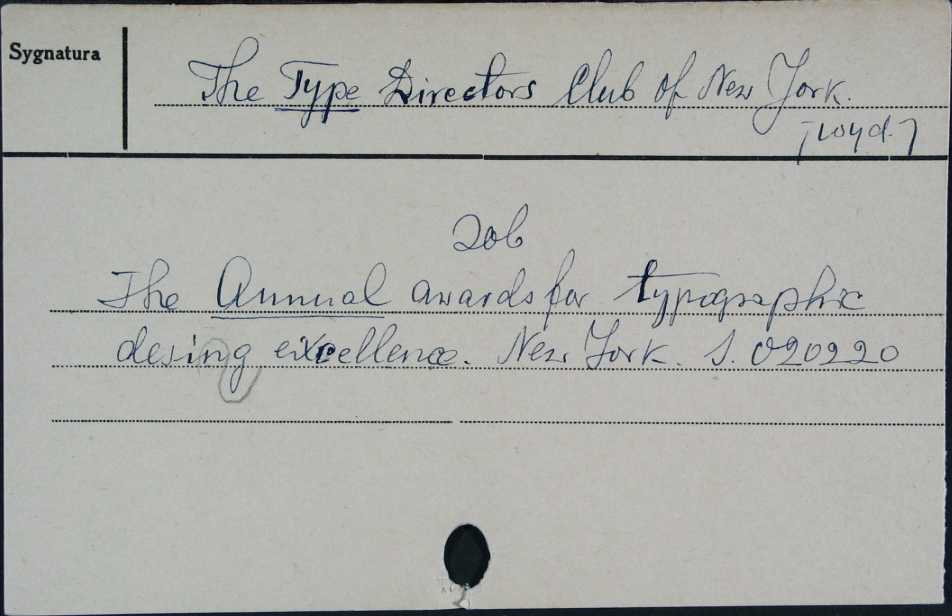 Sygnatura
The Type Directors Club of New York.
[wyd.]
Zob
The Annual awards for typographic
desing excellence. New York. S. 020220